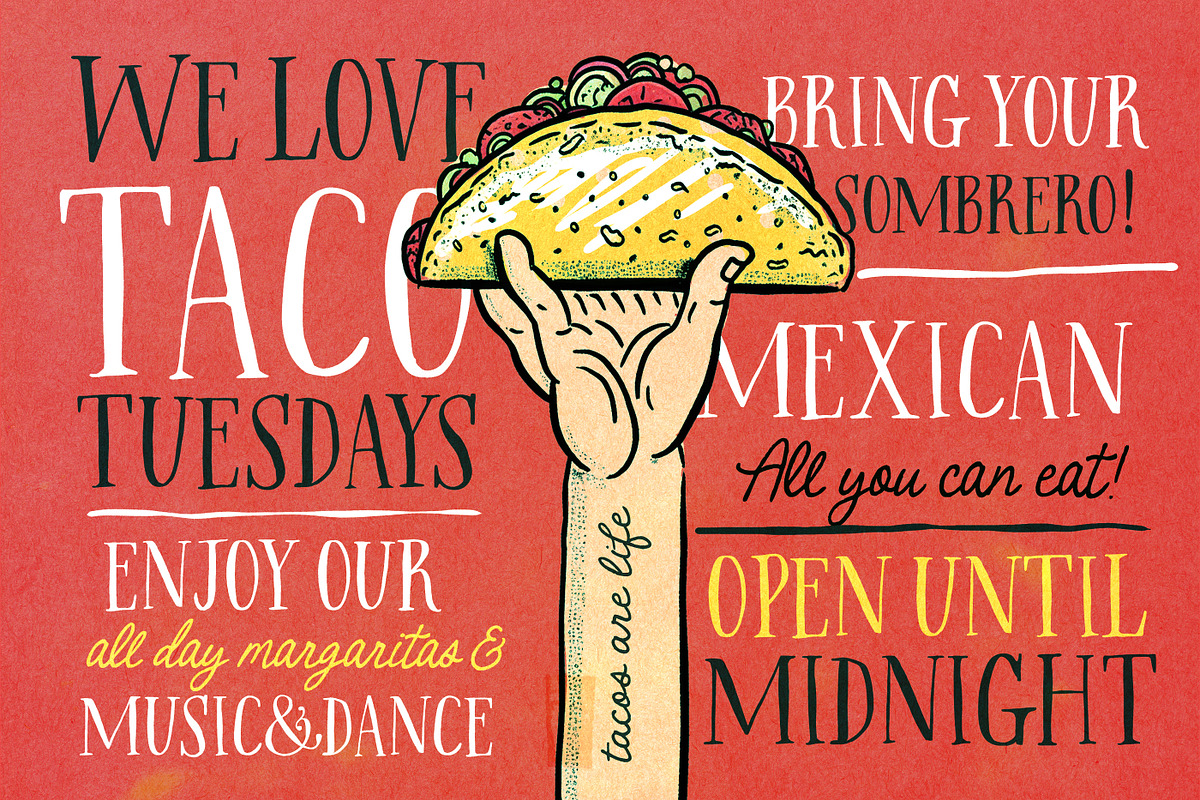 WE LOVE
TACO
TUESDAYS
ENJOY OUR
all day margaritas &
MUSIC & DANCE
tacos are life
BRING YOUR
SOMBRERO!
MEXICAN
All you can eat!
OPEN UNTIL
MIDNIGHT